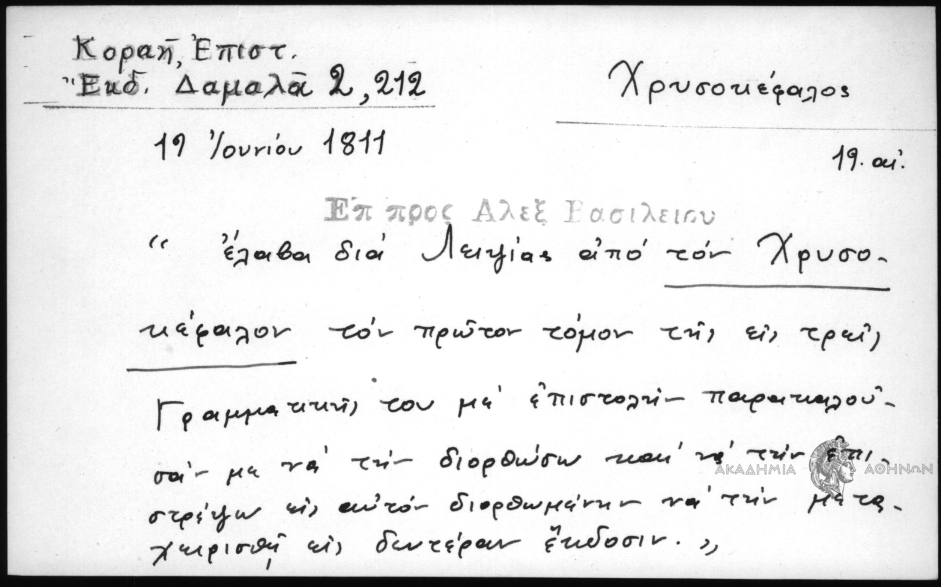 Κοραῆ, Ἐπιστ.
Ἔκδ. Δαμαλᾶ 2, 212
Χρυσοκέφαλος
19 Ἰουνίου 1811
19. αἰ.
Ἐπ προς Αλεξ Βασιλειου
“ ἔλαβα διά Λειψίας ἀπό τόν Χρυσο-
κέφαλον τόν πρῶτον τόμον τῆς εἰς τρεῖς
Γραμματικῆς του μέ ἐπιστολήν παρακαλοῦ-
σάν με νά τήν διορθώσω καί νά τήν ἐπι-
στρέψω εἰς αὐτόν διορθωμένην νά τήν μετα-
χειρισθῇ εἰς δευτέραν ἔκδοσιν. „
ΑΚΑΔΗΜΙΑ ΑΘΗΝΩΝ